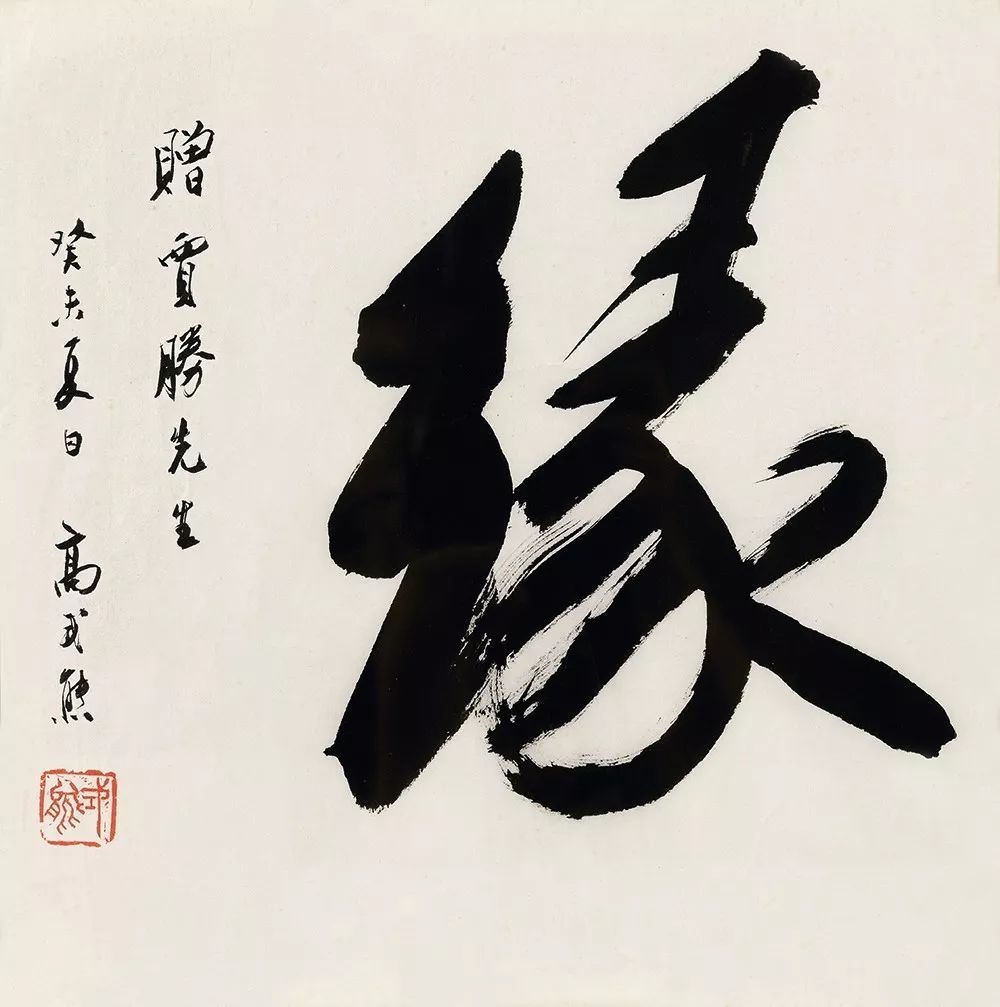 緣
贈賈勝先生
癸未夏日 高式熊
式熊